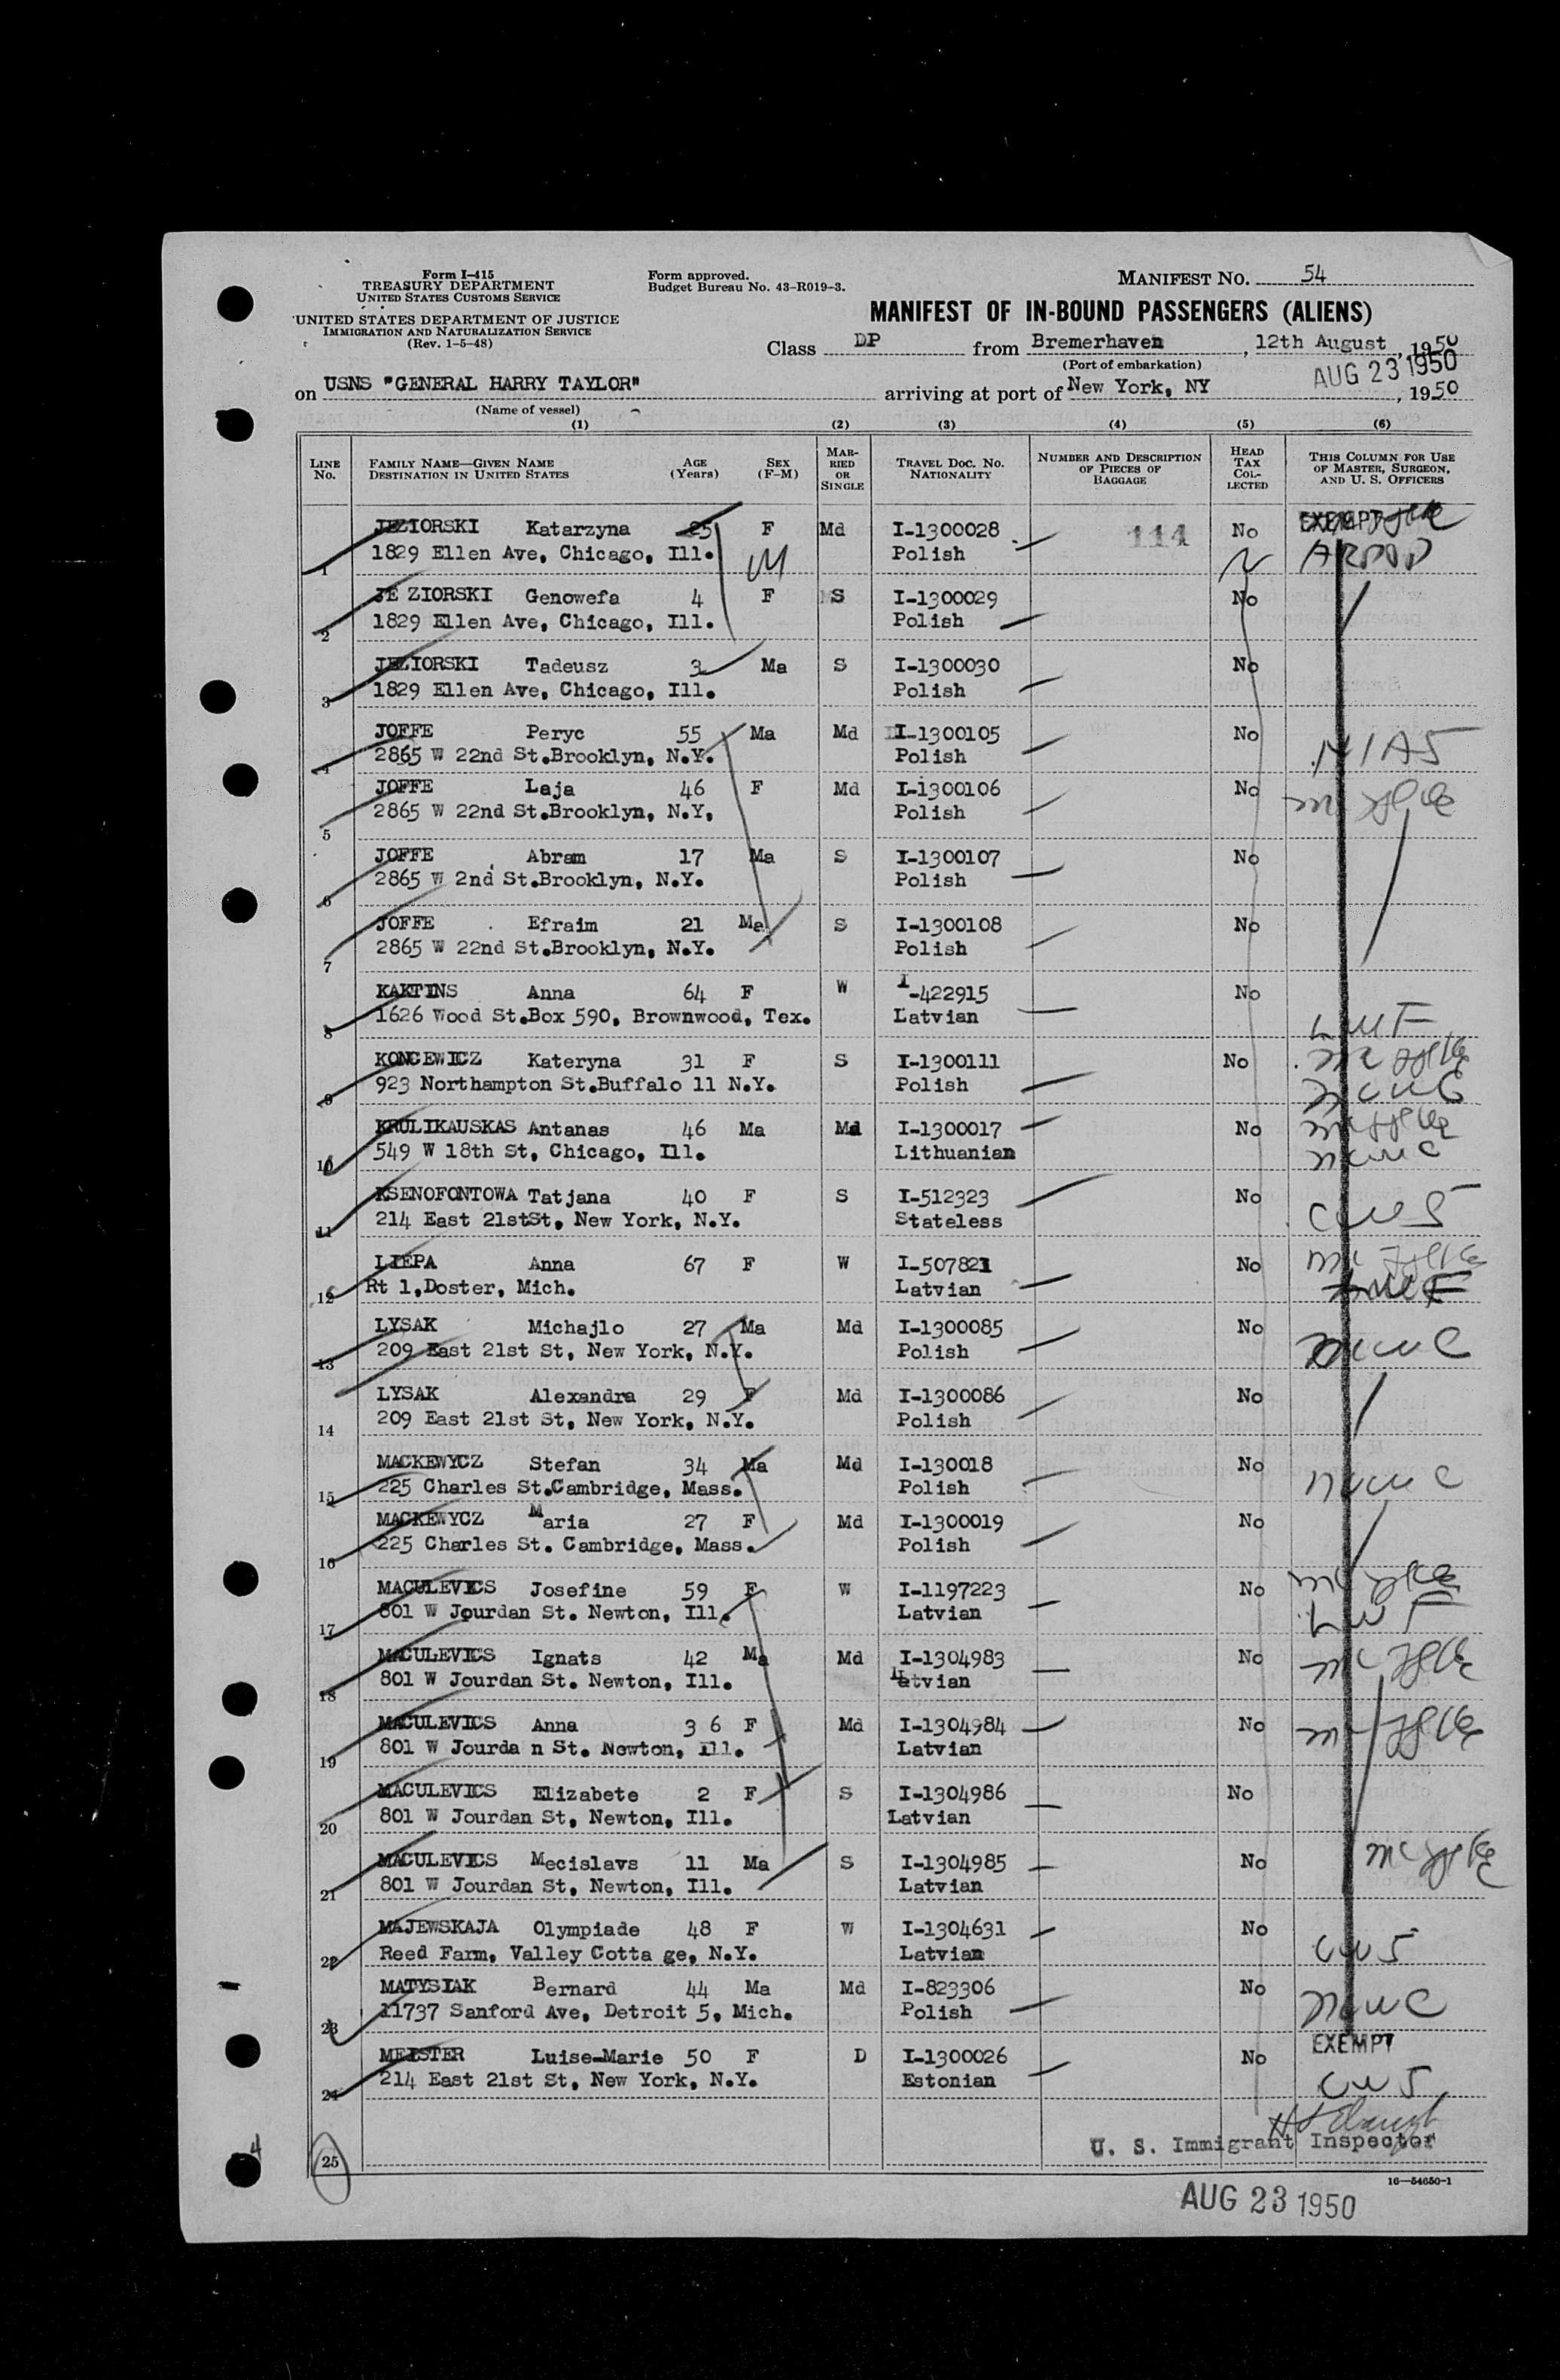 Form I-415
TREASURY DEPARTMENT
UNITED STATES CUSTOMS SERVICE
UNITED STATES DEPARTMENT OF JUSTICE
IMMIGRATION AND NATURALIZATION SERVICE
(Rev. 1-5-48)
Form approved.
Budget Bureau No. 43-R019-3.
MANIFEST NO. 54
MANIFEST OF IN-BOUND PASSENGERS (ALIENS)
Class DP from Bremerhaven, 12th August, 1950
(Port of embarkation)
AUG 23 1950
on USNS "GENERAL HARRY TAYLOR" arriving at port of New York, NY, 1950
(Name of vessel)
(1) (2) (3) (4) (5) (6)
LINE No. FAMILY NAME—GIVEN NAME DESTINATION IN UNITED STATES AGE (Years) SEX (F-M) MARRIED OR SINGLE TRAVEL DOC. NO. NATIONALITY NUMBER AND DESCRIPTION OF PIECES OF BAGGAGE HEAD TAX COLLECTED THIS COLUMN FOR USE OF MASTER, SURGEON, AND U. S. OFFICERS
JEZIORSKI Katarzyna 25 F Md I-1300028 114 No EXEMPT
1 1829 Ellen Ave, Chicago, Ill. Polish
JE ZIORSKI Genowefa 4 F S I-1300029 No
2 1829 Ellen Ave, Chicago, Ill. Polish
JEZIORSKI Tadeusz 3 Ma S I-1300030 No
3 1829 Ellen Ave, Chicago, Ill. Polish
JOFFE Peryc 55 Ma Md I-1300105 No
4 2865 W 22nd St.Brooklyn, N.Y. Polish
JOFFE Laja 46 F Md I-1300106 No
5 2865 W 22nd St.Brooklyn, N.Y, Polish
JOFFE Abram 17 Ma S I-1300107 No
6 2865 W 2nd St.Brooklyn, N.Y. Polish
JOFFE Efraim 21 Ma S I-1300108 No
7 2865 W 22nd St.Brooklyn, N.Y. Polish
KAKTINS Anna 64 F W I-422915 No
8 1626 Wood St.Box 590, Brownwood, Tex. Latvian
KONCEWICZ Kateryna 31 F S I-1300111 No
9 923 Northampton St.Buffalo 11 N.Y. Polish
KRULIKAUSKAS Antanas 46 Ma Md I-1300017 No
10 549 W 18th St, Chicago, Ill. Lithuanian
KSENOFONTOWA Tatjana 40 F S I-512323 No
11 214 East 21stSt, New York, N.Y. Stateless
LIEPA Anna 67 F W I-507821 No
12 Rt 1,Doster, Mich. Latvian
LYSAK Michajlo 27 Ma Md I-1300085 No
13 209 East 21st St, New York, N.Y. Polish
LYSAK Alexandra 29 F Md I-1300086 No
14 209 East 21st St, New York, N.Y. Polish
MACKEWYCZ Stefan 34 Ma Md I-130018 No
15 225 Charles St.Cambridge, Mass. Polish
MACKEWYCZ Maria 27 F Md I-1300019 No
16 225 Charles St. Cambridge, Mass. Polish
MACULEVICS Josefine 59 F W I-1197223 No
17 801 W Jourdan St. Newton, Ill. Latvian
MACULEVICS Ignats 42 Ma Md I-1304983 No
18 801 W Jourdan St. Newton, Ill. Latvian
MACULEVICS Anna 3 6 F Md I-1304984 No
19 801 W Jourda n St. Newton, Ill. Latvian
MACULEVICS Elizabete 2 F S I-1304986 No
20 801 W Jourdan St, Newton, Ill. Latvian
MACULEVICS Mecislavs 11 Ma S I-1304985 No
21 801 W Jourdan St, Newton, Ill. Latvian
MAJEWSKAJA Olympiade 48 F W I-1304631 No
22 Reed Farm, Valley Cotta ge, N.Y. Latvian
MATYSIAK Bernard 44 Ma Md I-823306 No
23 11737 Sanford Ave, Detroit 5, Mich. Polish
EXEMPT
MEISTER Luise-Marie 50 F D I-1300026 No
24 214 East 21st St, New York, N.Y. Estonian
25 U. S. Immigrant Inspector
16—54650-1
AUG 23 1950